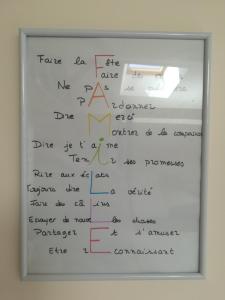 Faire la Fête
Faire des
Ne pAs se
pArdonner
Dire Merci
Montrer de la compassion
Dire je t'aime
Tenir ses promesses
Rire aux éclats
Toujours dire La vérité
Faire des câlins
Essayer de nouvelles choses
Partager Et s'amuser
Etre rEconnaissant